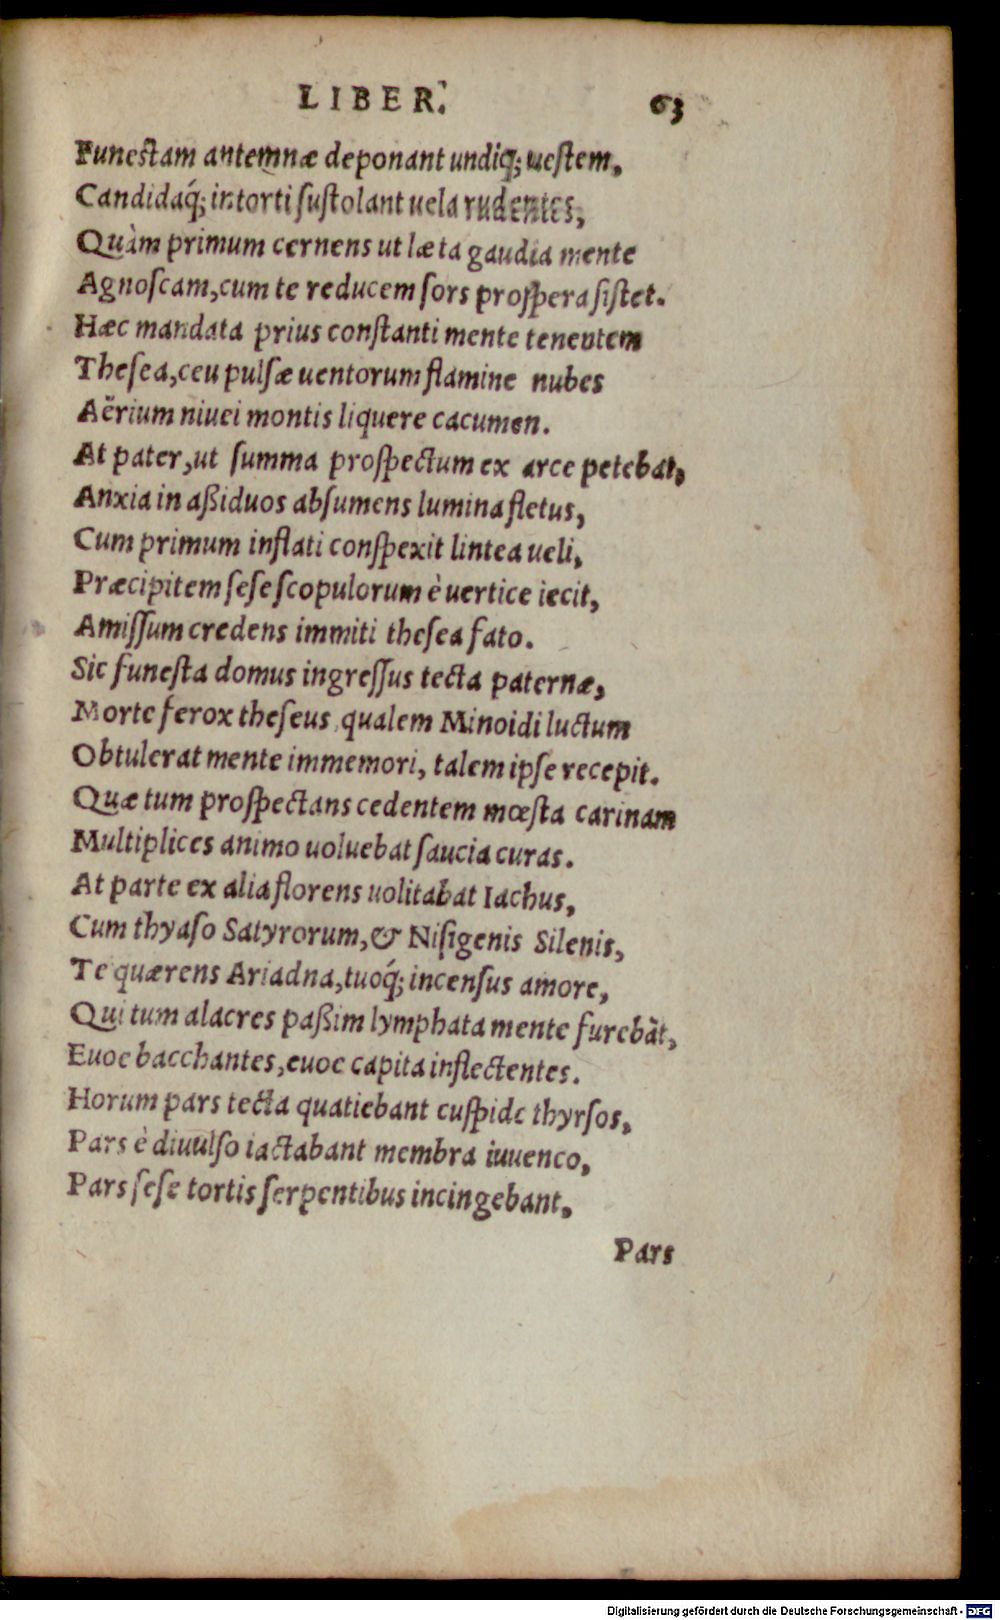 LIBER. 63
Funestam antemnæ deponant undiq́; uestem,
Candidaq́; intorti sustolant uela rudentes,
Quàm primum cernens ut læta gaudia mente
Agnoscam, cum te reducem sors prospera sistet.
Hæc mandata prius constanti mente tenentem
Thesea, ceu pulsæ uentorum flamine nubes
Aërium niuei montis liquere cacumen.
At pater, ut summa prospectum ex arce petebat,
Anxia in aßiduos absumens lumina fletus,
Cum primum inflati conspexit lintea ueli,
Præcipitem sese scopulorum è uertice iecit,
Amissum credens immiti thesea fato.
Sic funesta domus ingressus tecta paternæ,
Morte ferox theseus, qualem Minoidi luctum
Obtulerat mente immemori, talem ipse recepit.
Quæ tum prospectans cedentem mœsta carinam
Multiplices animo uoluebat saucia curas.
At parte ex alia florens uolitabat Iachus,
Cum thyaso Satyrorum, & Nisigenis Silenis,
Te quærens Ariadna, tuoq́; incensus amore,
Qui tum alacres paßim lymphata mente furebāt,
Euoe bacchantes, euoe capita inflectentes.
Horum pars tecta quatiebant cuspide thyrsos,
Pars è diuulso iactabant membra iuuenco,
Pars sese tortis serpentibus incingebant,
Pars
Digitalisierung gefördert durch die Deutsche Forschungsgemeinschaft - DFG